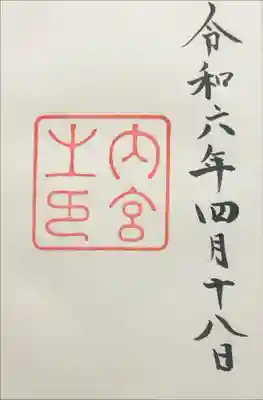 令和六年四月十八日
内宮
之印